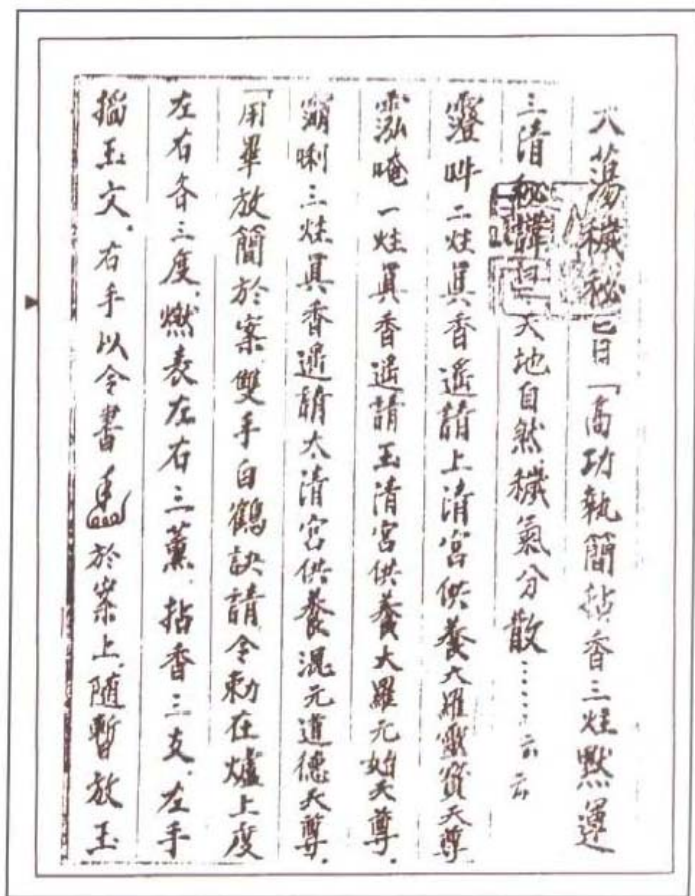 大蕩穢秘已曰「高功執簡拈香三炷默運
三清秘諱曰天地自然穢氣分散……云云
二炷真香遙請上清宮供養大羅靈寶天尊
泓唵一炷真香遙請玉清宮供養大羅元始天尊.
唎三炷真香遙請太清宮供養混元道德天尊.
「用畢放簡於案.雙手白鶴訣請令勅在爐上度
左右各三度.燃表左右三薰.拈香三支.左手
搯玉文.右手以令書於案上.隨暫放玉